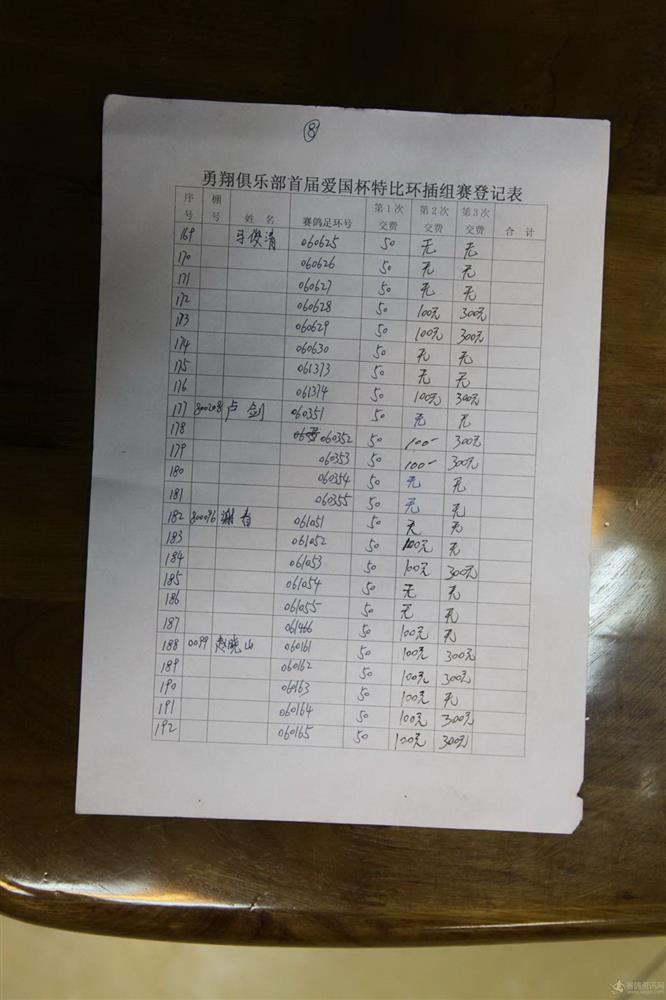 ⑧
勇翔俱乐部首届爱国杯特比环插组赛登记表
序号 棚号 姓名 赛鸽足环号 第1次交费 第2次交费 第3次交费 合计
169 马俊清 060625 50 无 无
170 060626 50 无 无
171 060627 50 无 无
172 060628 50 100元 300元
173 060629 50 100元 300元
174 060630 50 无 无
175 061373 50 无 无
176 061374 50 100元 300元
177 800208 卢剑 060351 50 无 无
178 060352 50 100- 300元
179 060353 50 100- 300元
180 060354 50 无 无
181 060355 50 无 无
182 800096 谢春 061051 50 无 无
183 061052 50 100元 无
184 061053 50 100元 300元
185 061054 50 无 无
186 061055 50 无 无
187 061466 50 100元 无
188 0099 赵晓山 060161 50 100元 300元
189 060162 50 100元 300元
190 060163 50 100元 无
191 060164 50 100元 300元
192 060165 50 100元 300元
赛鸽资讯网